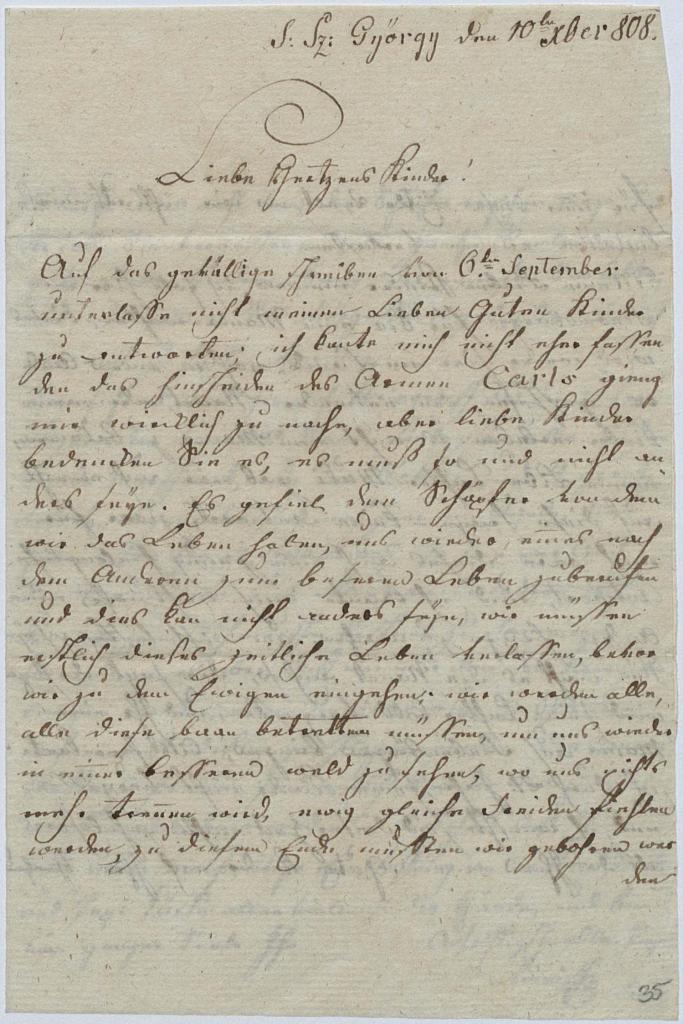 S: Sz: György den 10ten Xber 808.
Liebe Hertzens Kinder!
Auf das gefällige schreiben von 6ten September
unterlasse nicht meinen Lieben Guten Kinder
zu entworten; ich konte mich nicht eher fassen
den das hinscheiden des Armen Carls gieng
mir wircklich zu nahe, aber liebe Kinder
bedencken Sie es, es muß so und nicht an
ders seyn. Es gefiel dem Schöpfer von dem
wir das Leben haben, uns wieder eines nach
dem Anderen zum besseren Leben zuberufen
und dies kan nicht anders seyn, wir müssen
erstlich dieses zeitliche Leben verlassen, bevor
wir zu dem Ewigen eingehen; wir werden alle,
alle diese baan betretten müssen, um uns wieder
in einer besseren weld zu sehen, wo uns nichts
mehr trennen wird, ewig gleiche Freiden fiehlen
werden, zu diesem Ende musten wir gebohren wer
den
35